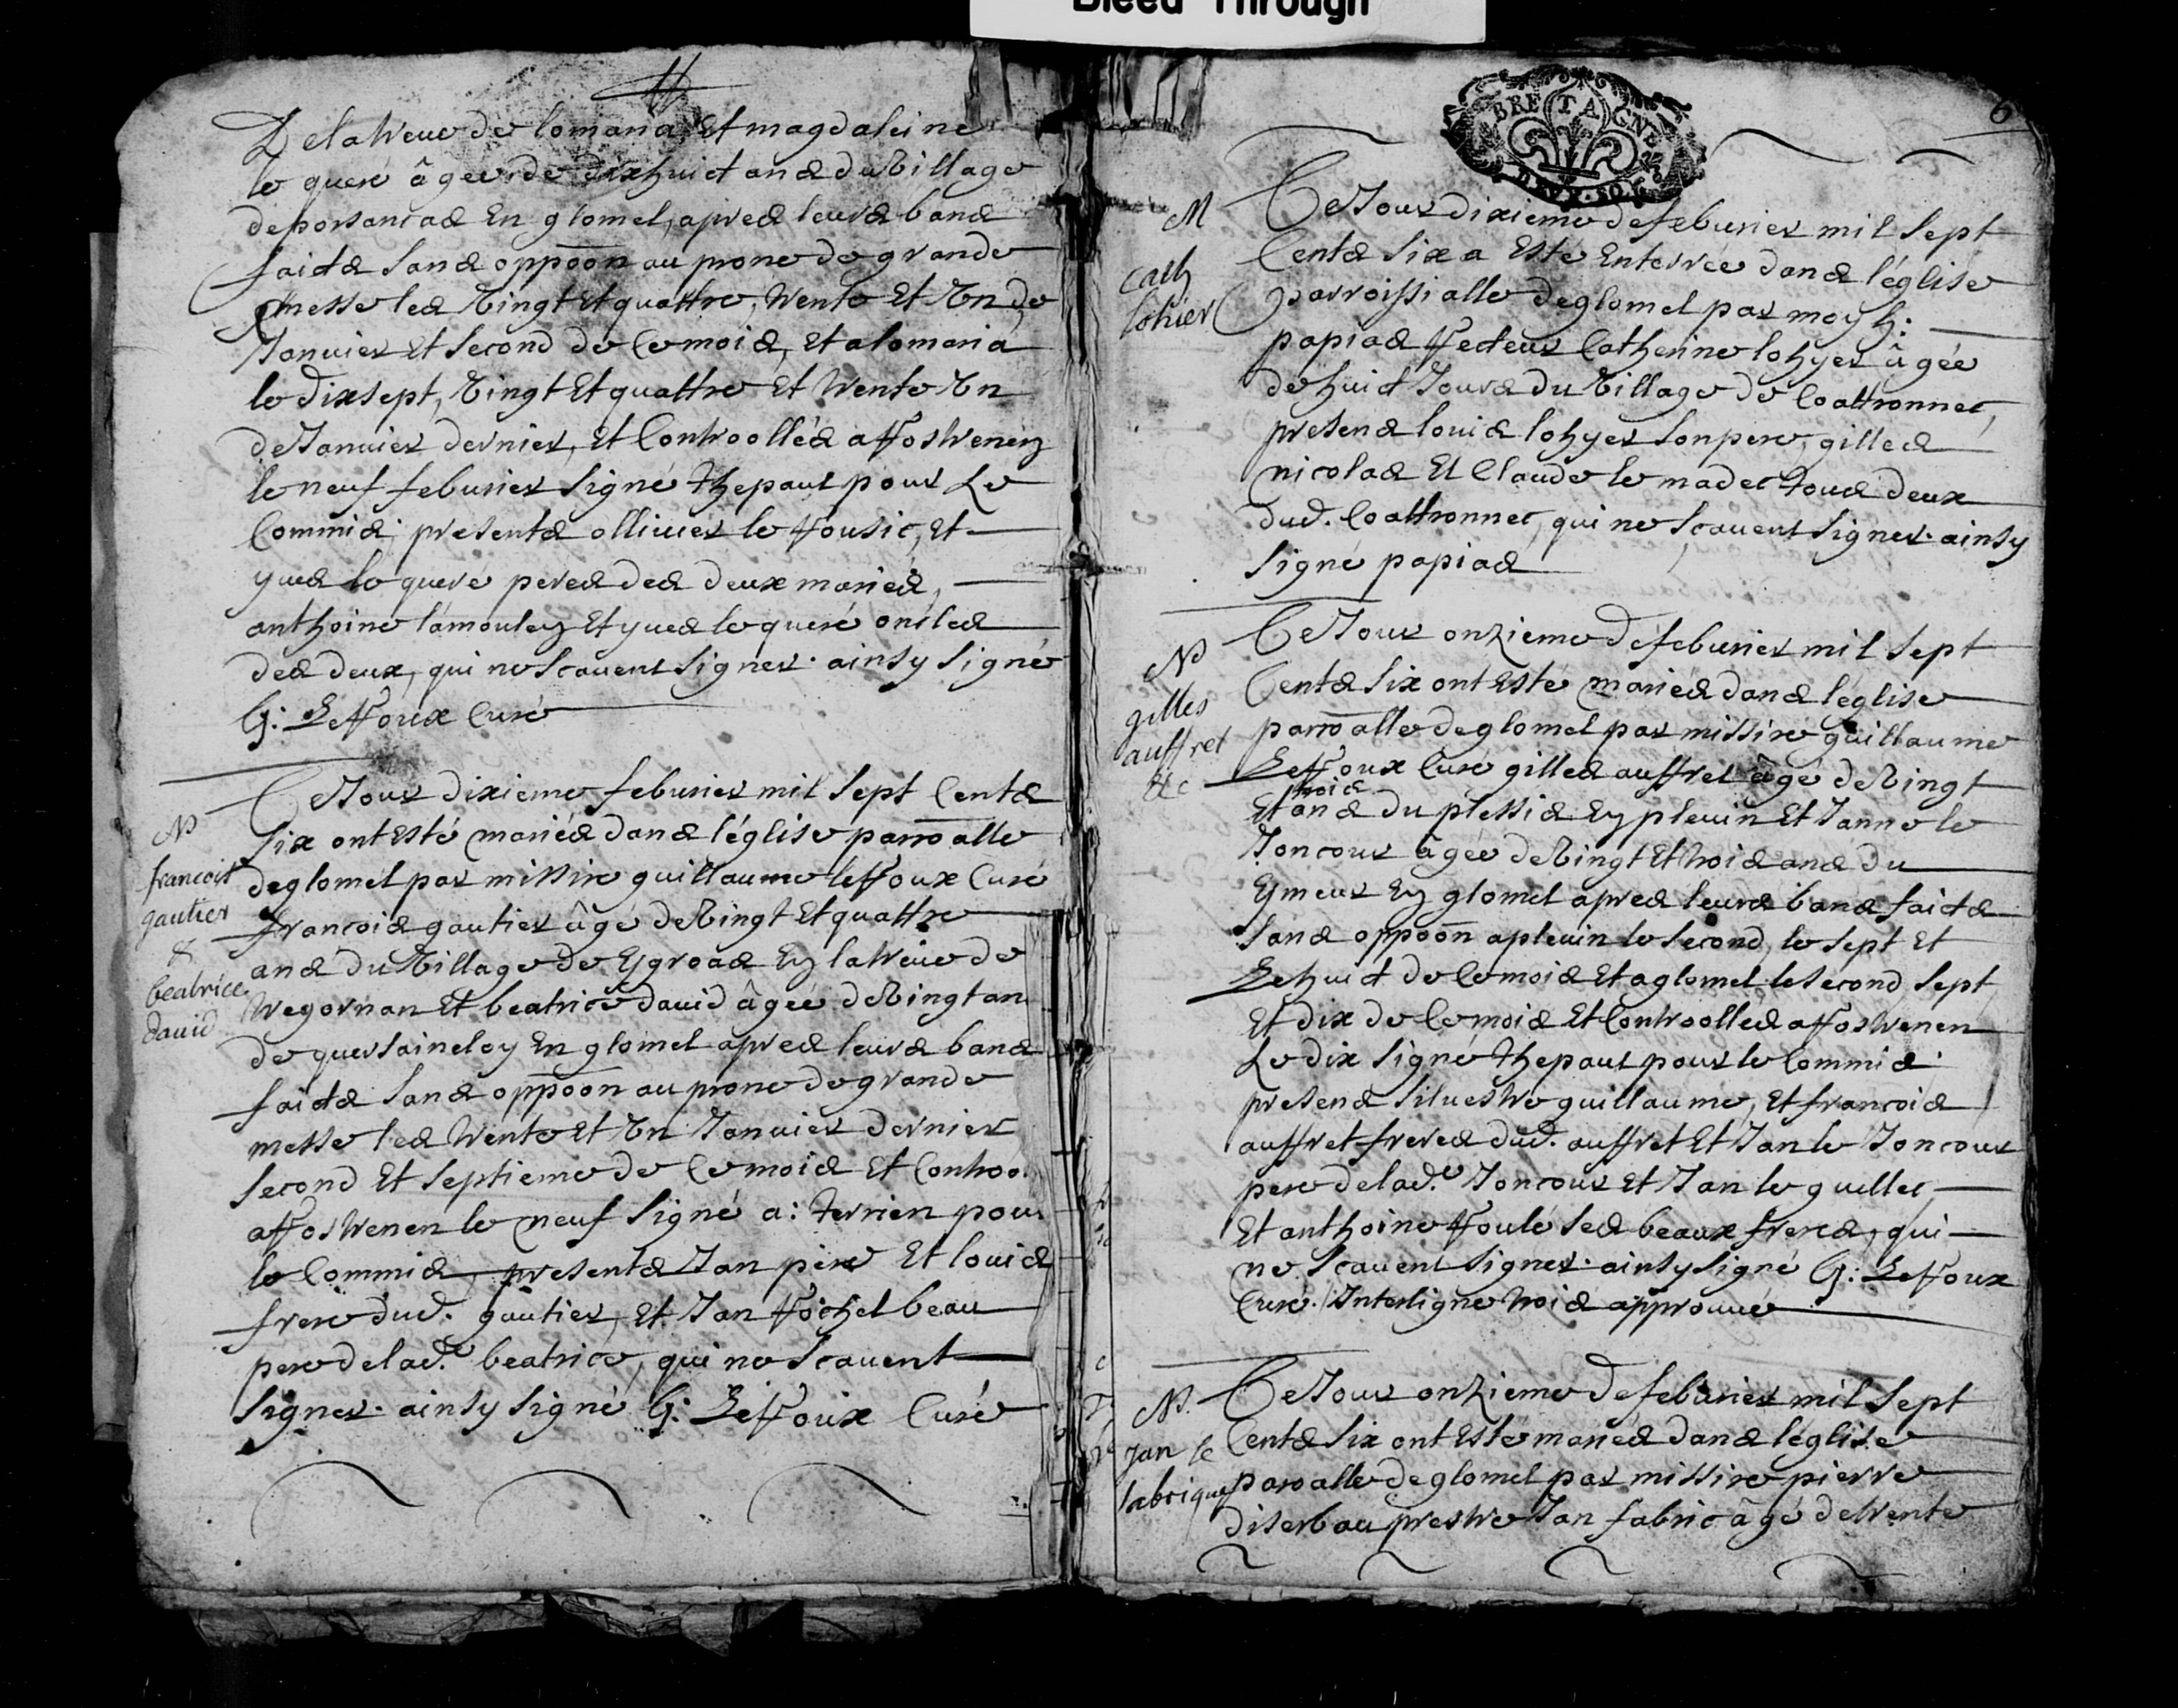 Bleed Through
De la treue de lomaria Et magdaleine
le queré âgée de dixhuict ans du village
de porsancas En glomel, apres leurs bans
faicts sans oppoon au prone de grande
messe les vingt Et quattre, trente Et vn de
Januier Et second de ce mois, Et a lomaria
le dixsept, vingt Et quattre Et trente vn
de Januier dernier, Et Controollés a Rostrenen
le neuf feburier signé thepaut pour Le
Commis; presents olliuier le Rousic, Et
yues le queré peres des deux mariés,
anthoine lamoulen Et yues le queré oncles
des deux, qui ne scauent signer. ainsy signé
G: Le Roux Curé
francois
gautier
&
beatrice
dauid
Ce Jour dixieme feburier mil sept Cents
six ont Esté mariés dans l'église parroalle
de glomel par missire guillaume le Roux Curé
francois gautier âgé de vingt Et quattre
ans du village de Kgroas En la treue de
tregornan Et beatrice dauid âgée de vingt an
de quersaineloy En glomel apres leurs bans
faicts sans oppoon au prone de grande
messe les trente Et vn Januier dernier
second Et septieme de ce mois Et Controo
a Rostrenen le neuf signé a: terrien pour
le Commis, presents Jan pere Et louis
frere dud. gautier, Et Jan Rochel beau
pere de lad.e beatrice, qui ne scauent
signer. ainsy signé G: Le Roux Curé
BRETAGNE
DEUX SOLS
6
M
Cath
lohier
Ce Jour dixieme de feburier mil sept
Cents six a Esté Enterrée dans l'église
parroissialle de glomel par moy h:
papias Recteur Catherine lohyer âgée
de huict Jours du village de Coattronnec,
presens louis lohyer son pere, gilles
nicolas Et Claude le madec tous deux
dud. Coattronnec, qui ne scauent signer. ainsy
signé papias
gilles
auffret
&c
Ce Jour onzieme de feburier mil sept
Cents six ont Esté mariés dans l'église
parroalle de glomel par missire guillaume
Le Roux Curé gilles auffret âgé de vingt
trois
Et ans du plessis En pleuin Et Janne le
Joncour âgée de vingt Et trois ans du
Kmeur En glomel apres leurs bans faicts
sans oppoon a pleuin le second, le sept Et
Le huict de ce mois Et a glomel le second sept
Et dix de ce mois Et Controolles a Rostrenen
Le dix signé thepaut pour le Commis
presens siluestre guillaume, Et francois
auffret freres dud. auffret Et Jan le Joncour
pere de lad.e Joncour Et Jan le guellec
Et anthoine Roulé ses beaux freres, qui
ne scauent signer. ainsy signé G: Le Roux
Curé. / Interligne trois approuué
M.
Jan le
fabrique
Ce Jour onzieme de feburier mil sept
Cents six ont Esté mariés dans l'église
paroalle de glomel par missire pierre
diserbau prestre Jan fabric âgé de trente